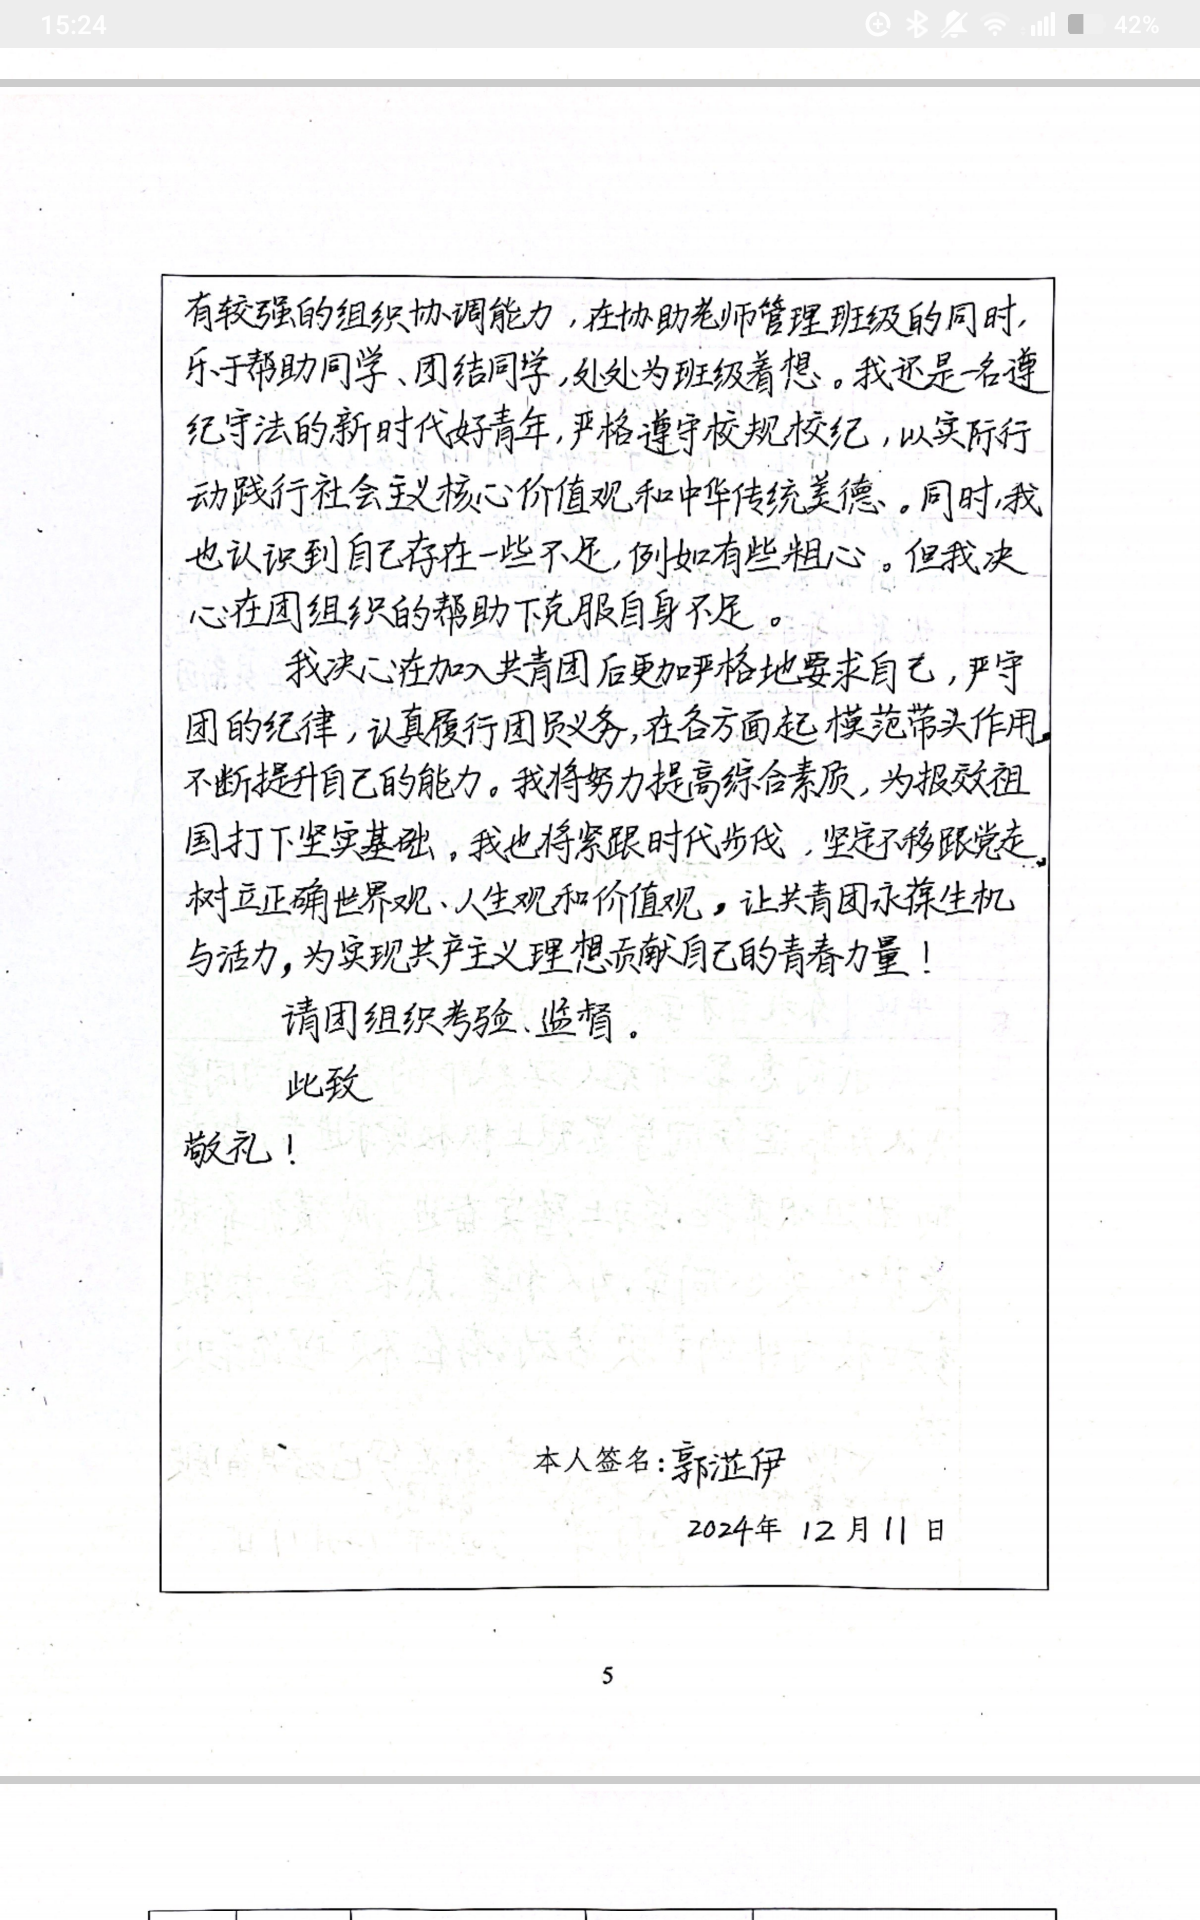 15:24
42%
有较强的组织协调能力，在协助老师管理班级的同时，
乐于帮助同学、团结同学，处处为班级着想。我还是一名遵
纪守法的新时代好青年，严格遵守校规校纪，以实际行
动践行社会主义核心价值观和中华传统美德。同时，我
也认识到自己存在一些不足，例如有些粗心。但我决
心在团组织的帮助下克服自身不足。
我决心在加入共青团后更加严格地要求自己，严守
团的纪律，认真履行团员义务，在各方面起模范带头作用，
不断提升自己的能力。我将努力提高综合素质，为报效祖
国打下坚实基础。我也将紧跟时代步伐，坚定不移跟党走，
树立正确世界观、人生观和价值观，让共青团永葆生机
与活力，为实现共产主义理想贡献自己的青春力量！
请团组织考验、监督。
此致
敬礼！
本人签名：郭滋伊
2024年 12月 11日
5